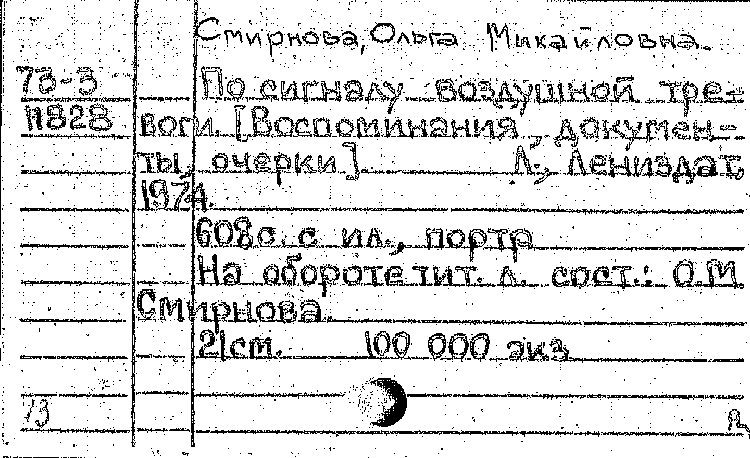 Смирнова, Ольга Михайловна.
73-3 По сигналу воздушной тре-
П828 воги. [Воспоминания, докумен-
ты, очерки]. Л., Лениздат,
1974.
608 с. с ил., портр
На обороте тит. л. сост.: О.М.
Смирнова.
21 см. 100 000 экз
13